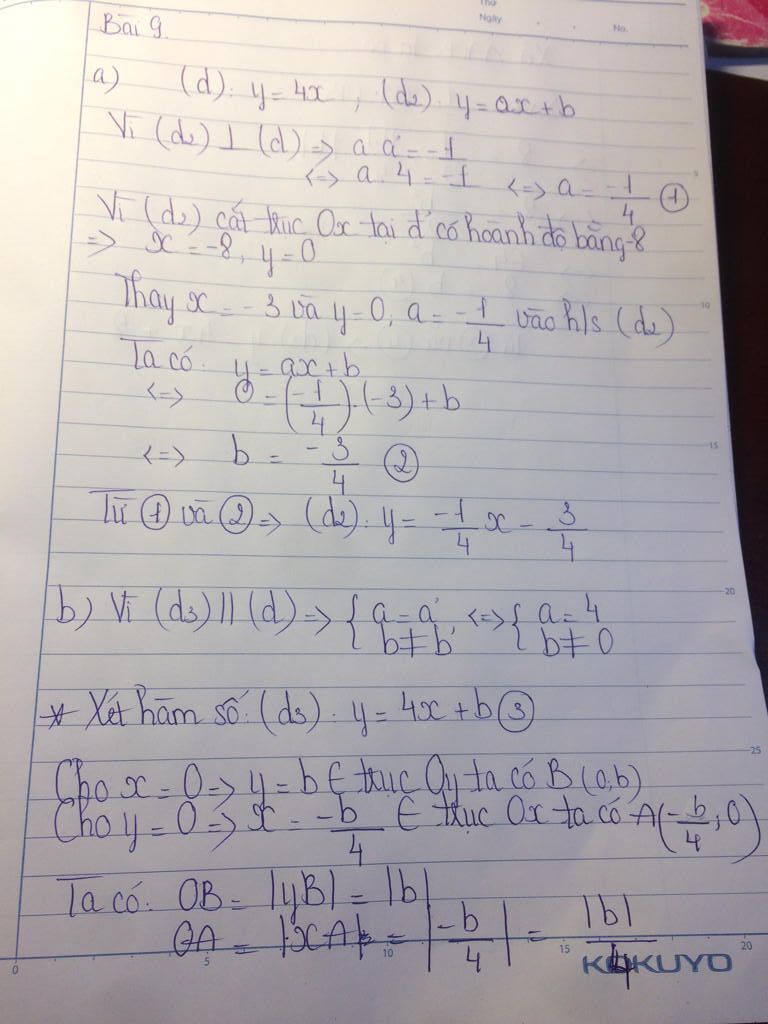 Thứ
Ngày
No.
Bài 9.
a) (d): y = 4x , (d2): y = ax + b
Vì (d2) ⊥ (d) => a.a' = -1
<=> a.4 = -1 <=> a = -1/4 ①
Vì (d2) cắt trục Ox tại đ' có hoành độ bằng -8
=> x = -8, y = 0
Thay x = -3 và y = 0, a = -1/4 vào h/s (d2)
Ta có: y = ax + b
<=> 0 = (-1/4).(-3) + b
<=> b = -3/4 ②
Từ ① và ② => (d2): y = -1/4 x - 3/4
b) Vì (d3) || (d) => { a = a' <=> { a = 4
b ≠ b' b ≠ 0
* Xét hàm số: (d3): y = 4x + b ③
Cho x = 0 => y = b ∈ trục Oy ta có B (0;b)
Cho y = 0 => x = -b/4 ∈ trục Ox ta có A(-b/4; 0)
Ta có: OB = |yB| = |b|
OA = |xA| = |-b/4| = |b|/4
KOKUYO
0 5 10 15 20
5
10
15
20
25